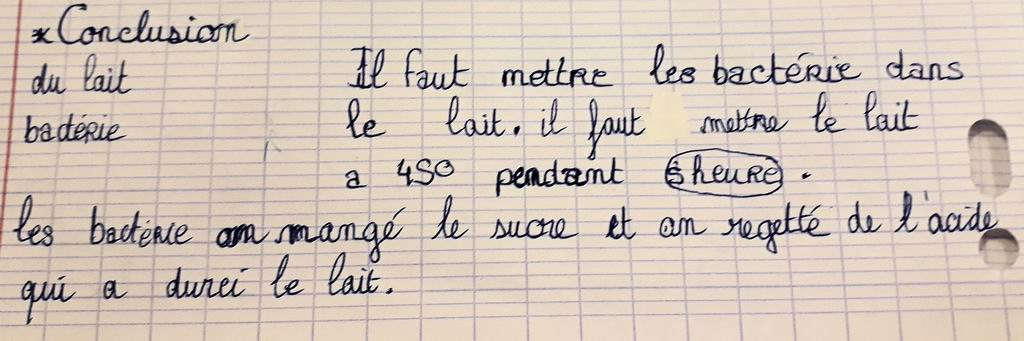 *Conclusion
du lait Il faut mettre les bactérie dans
bactérie le lait. il faut mettre le lait
a 450 pendant 5 heure.
les bactérie on mangé le sucre et on regetté de l'acide
qui a durci le lait.